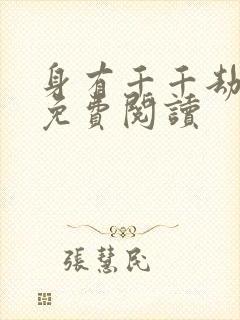 身有千千劫
免費閱讀
張慧民